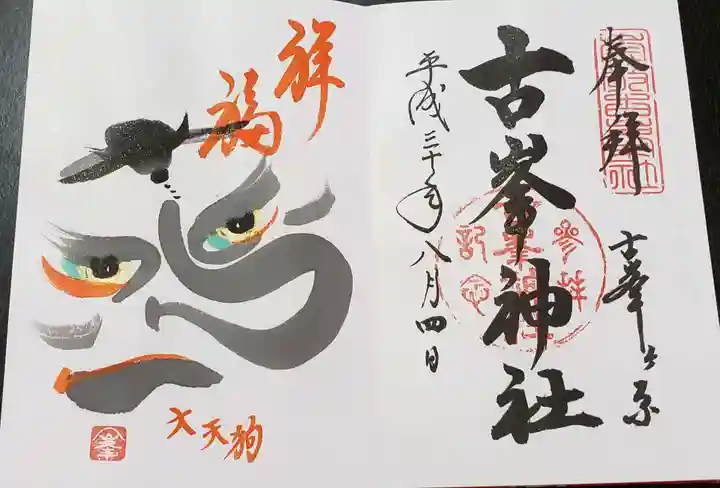 奉拝
古峯ヶ原
古峯神社
平成三十年八月四日
祥福
大天狗